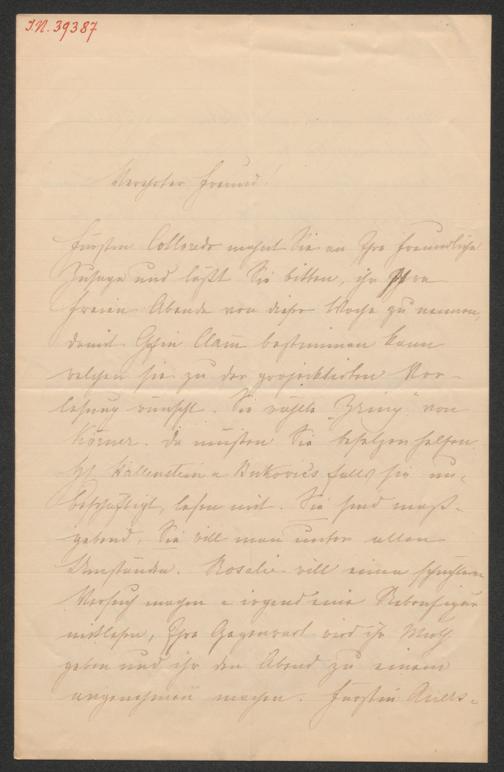 I.N. 39387
Verehrter Freund!
Fürstin Colloredo mahnt Sie an Ihre freundliche
Zusage und läßt Sie bitten, ihr Ihre
freien Abende von dieser Woche zu nennen,
damit Gfin Clam bestimmen kann
welchen sie zu der projektirten Vor-
lesung wünscht. Sie wählte "Zriny" von
Körner. Da müßten Sie helfen
Wallenstein u Bukovics falls sie un-
beschäftigt, lesen mit. Sie sind maß-
gebend. Sie will man unter allen
Umständen. Rosalie will einen schüchternen
Versuch machen u irgend eine Nebenfigur
mitlesen, Ihre Gegenwart wird ihr Muth
geben und ihr den Abend zu einem
angenehmen machen. Fürstin Auers-